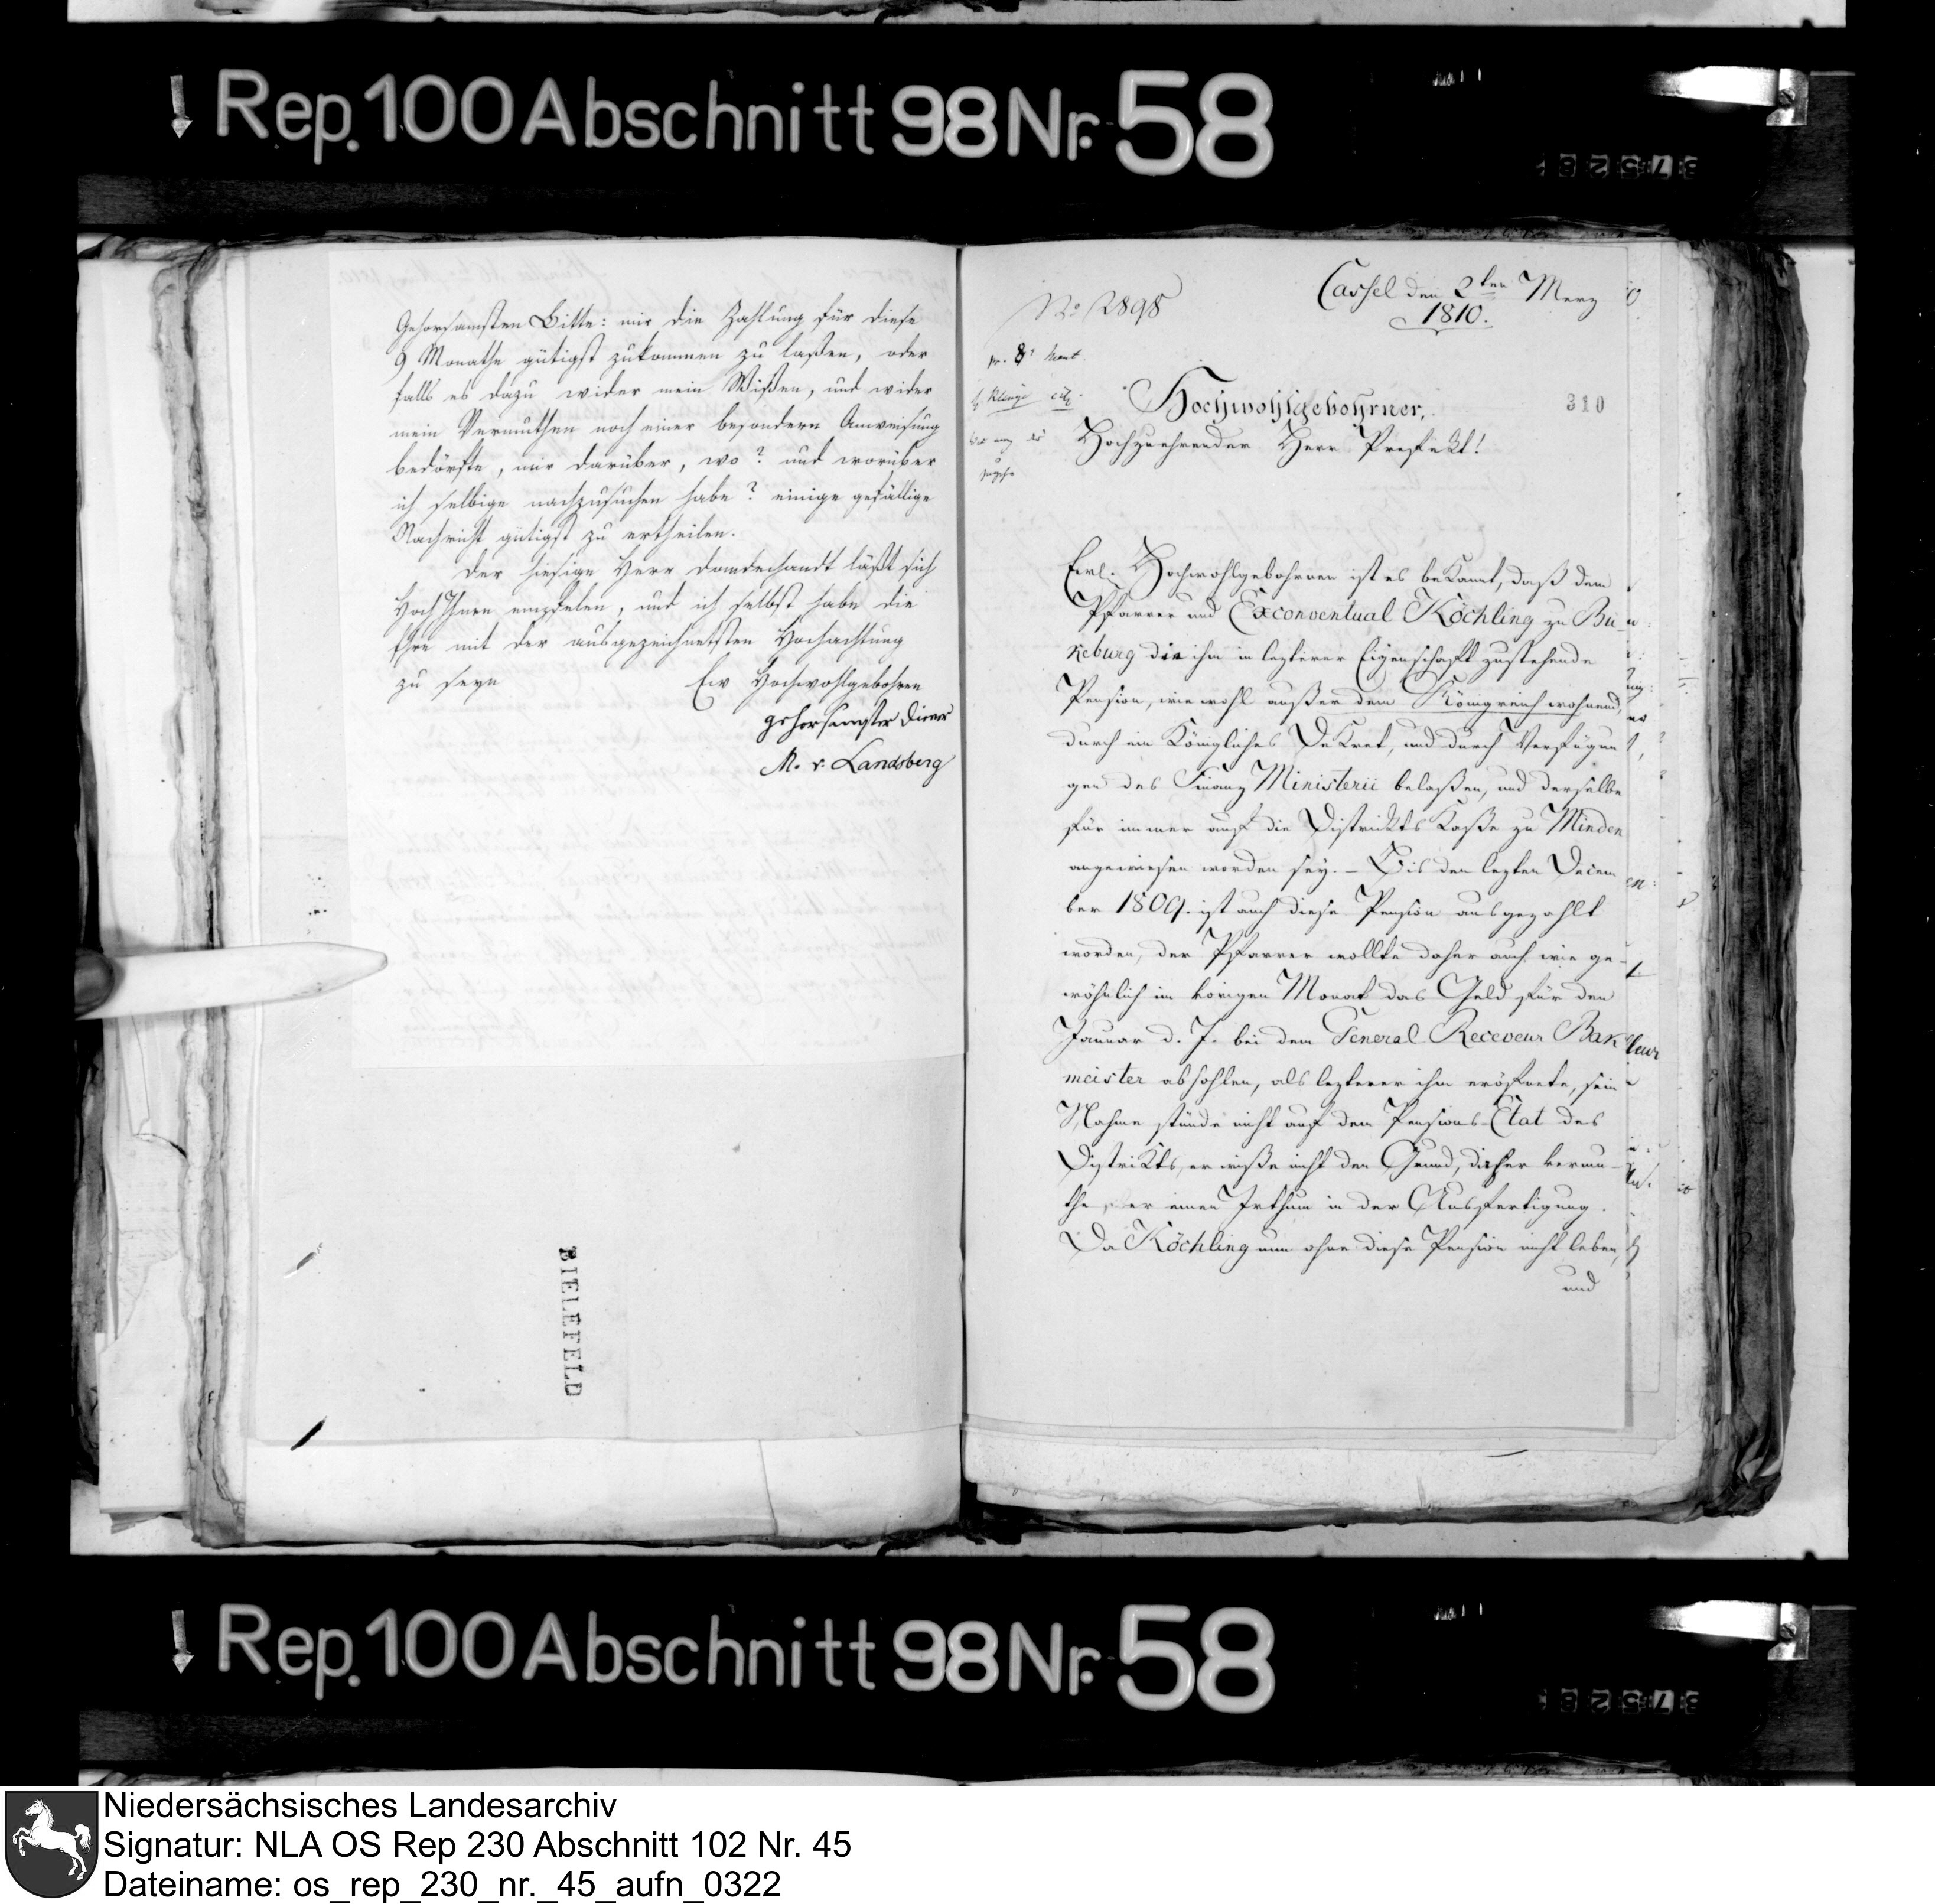 Rep. 100 Abschnitt 98 Nr. 58
Gehorsamsten Bitte: mir die Zahlung für diese
9 Monathe gütigst zukommen zu laßen, oder
falls es dazu wider mein Wißen, und wider
mein Vermuthen noch einer besondern Anweisung
bedörfte, mir darüber, wo? und worüber
ich selbige nachzusuchen habe? einige gefällige
Nachricht gütigst zu ertheilen.
Der hiesige Herr Domdechandt läßt sich
Hoch Ihnen empfelen, und ich selbst habe die
Ehre mit der ausgezeichnetsten Hochachtung
zu seyn Ew Hochwohlgebohren
gehorsamster Diener
M. v. Landsberg
BIELEFELD
No 2898
Cassel den 2ten Merz
1810.
310
Hochwohlgebohrner,
Hochzuehrender Herr Prefekt!
Ewl. Hochwohlgebohrnen ist es bekannt, daß dem
Pfarrer und Exconventual Köchling zu Bü-
keburg die ihm in lezterer Eigenschaft zustehende
Pension, wiewohl außer dem Königreich wohnend,
durch ein Königliches Dekret, und durch Verfügun
gen des Finanz Ministerii belaßen, und derselbe
für immer auf die Distrikts Kaße zu Minden
angewiesen worden sey. – Bis den lezten Decem
ber 1809. ist auch diese Pension ausgezahlt
worden, der Pfarrer wollte daher auch wie ge-
wöhnlich im vorigen Monat das Geld für den
Januar d. J. bei dem General Receveur Bak
meister abhohlen, als lezterer ihm eröfnete, sein
Nahme stünde nicht auf dem Pensions-Etat des
Distrikts, er wiße nicht den Grund, daher vermu-
the er einen Irthum in der Ausfertigung.
Da Köchling nun ohne diese Pension nicht leben,
und
Rep. 100 Abschnitt 98 Nr. 58
Niedersächsisches Landesarchiv
Signatur: NLA OS Rep 230 Abschnitt 102 Nr. 45
Dateiname: os_rep_230_nr._45_aufn_0322